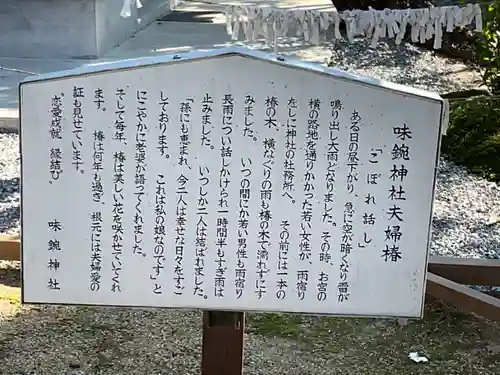 味鋺神社夫婦椿
「こぼれ話し」
ある日の昼下がり、急に空が暗くなり雷が
鳴り出し大雨となりました。その時、お宮の
横の路地を通りかかった若い女性が、雨宿り
をしに神社の社務所へ。その前には一本の
椿の木、横なぐりの雨も椿の木で濡れずにす
みました。いつの間にか若い男性も雨宿り
長雨につい話しかけられ一時間半もすぎ雨は
止みました。いつしか二人は結ばれました。
「孫にも恵まれ、今二人は幸せな日々をすご
しております。これは私の娘なのです」と
にこやかに老婆が語ってくれました。
そして毎年、椿は美しい花を咲かせていてくれ
ます。椿は何年も過ぎ、根元には夫婦愛の
証も見せています。
〝恋愛成就、縁結び〟
味鋺神社